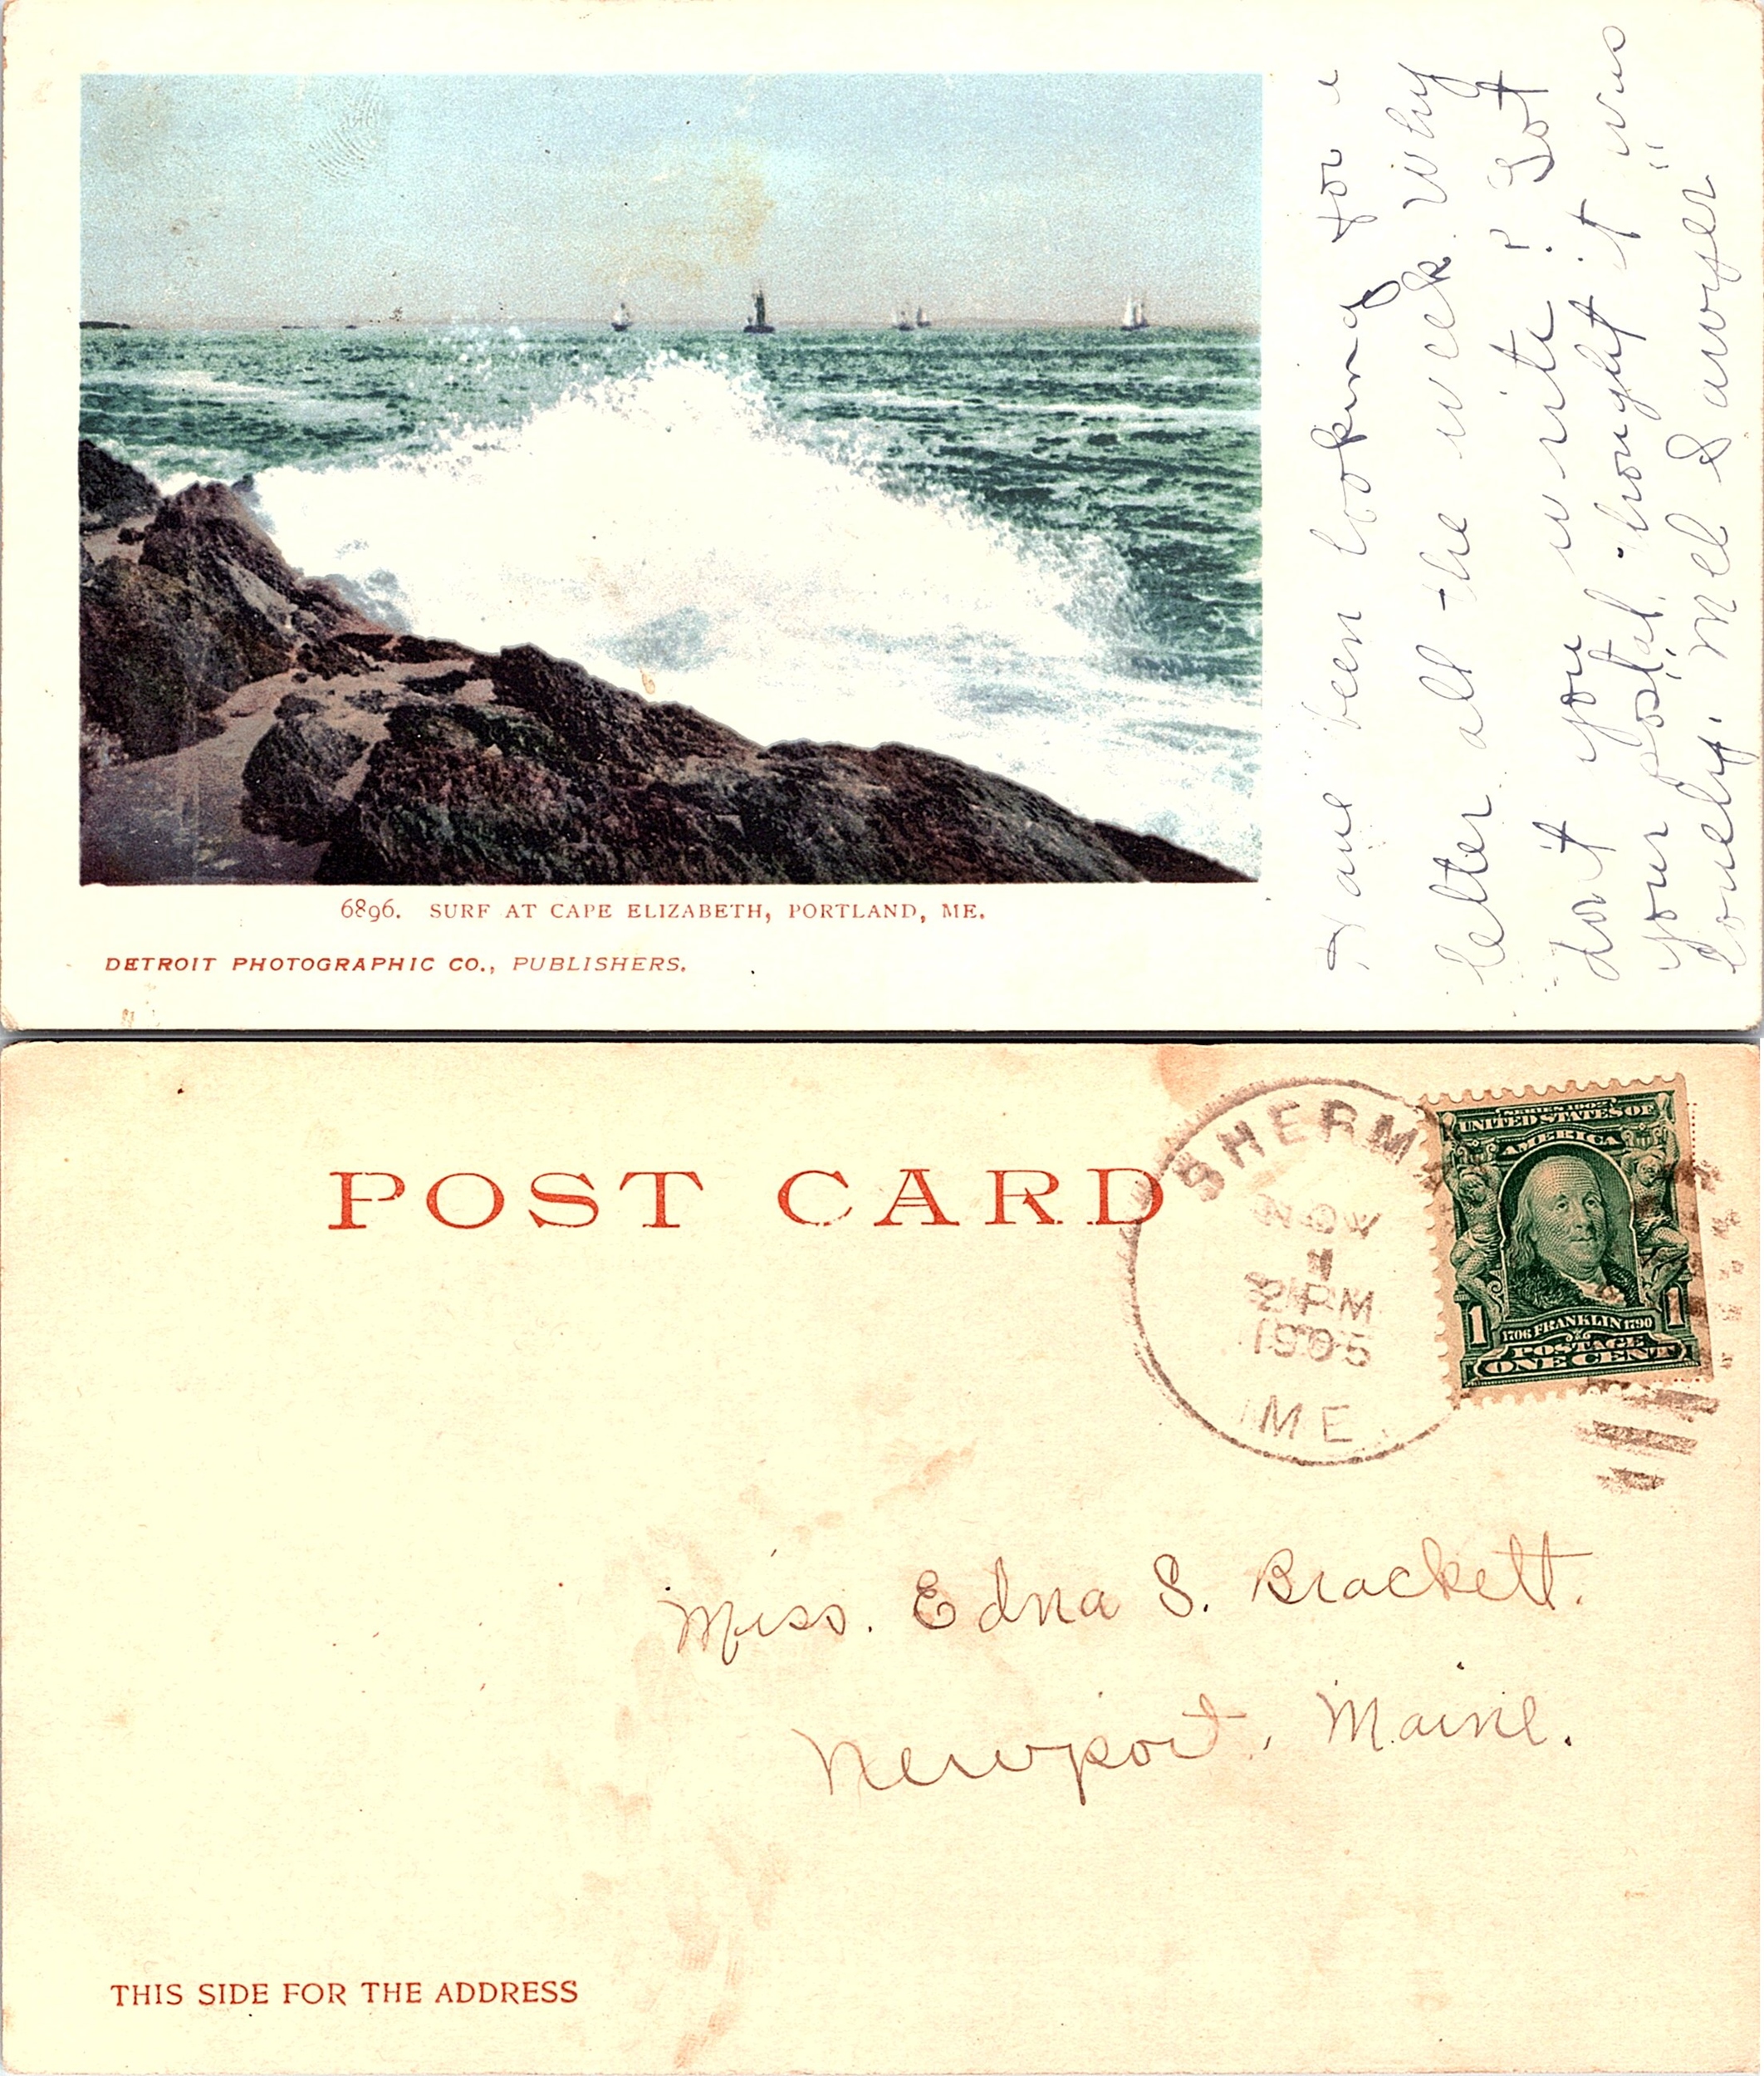 6896. SURF AT CAPE ELIZABETH, PORTLAND, ME.
DETROIT PHOTOGRAPHIC CO., PUBLISHERS.
Have been looking for a
letter all the week. Why
don't you write? Got
your postal. thought it was
lonely. Mel S
POST CARD
SHERMA
NOV
1
2 PM
1905
ME
SERIES 1902
UNITED STATES OF
AMERICA
1 1
1706 FRANKLIN 1790
POSTAGE
ONE CENT
Miss. Edna S. Brackett.
Newport, Maine.
THIS SIDE FOR THE ADDRESS